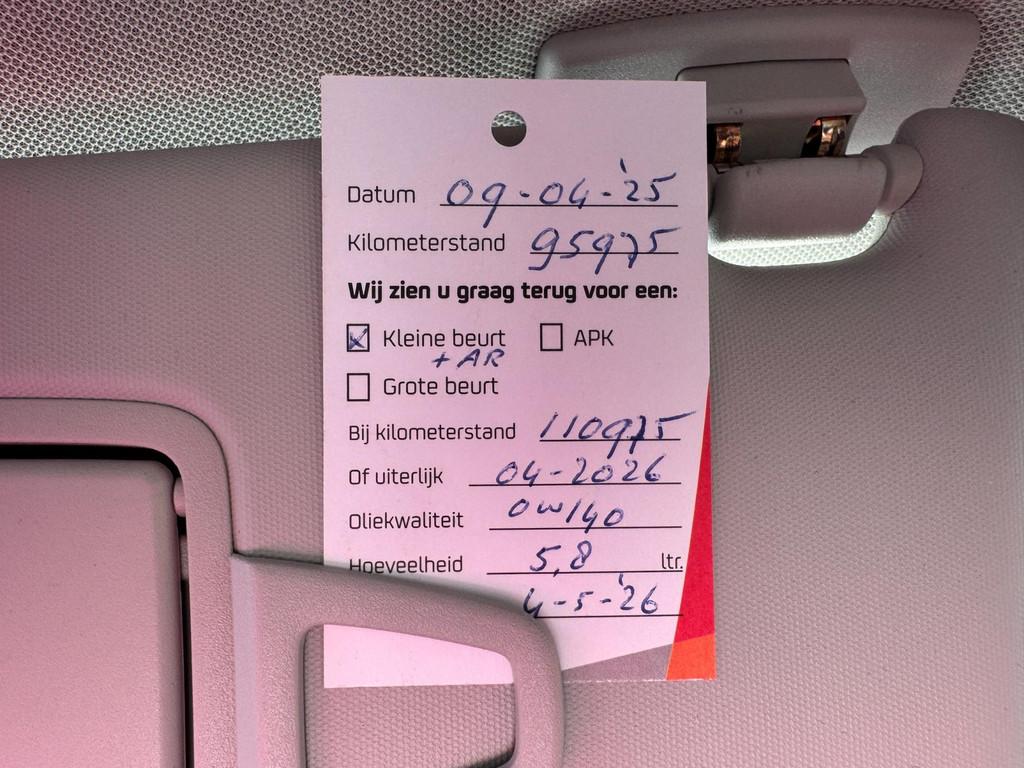 Datum 09-04-'25
Kilometerstand 95975
Wij zien u graag terug voor een:
☒ Kleine beurt ☐ APK
+ AR
☐ Grote beurt
Bij kilometerstand 110975
Of uiterlijk 04-2026
Oliekwaliteit 0W/40
Hoeveelheid 5,8 ltr.
4-5-'26